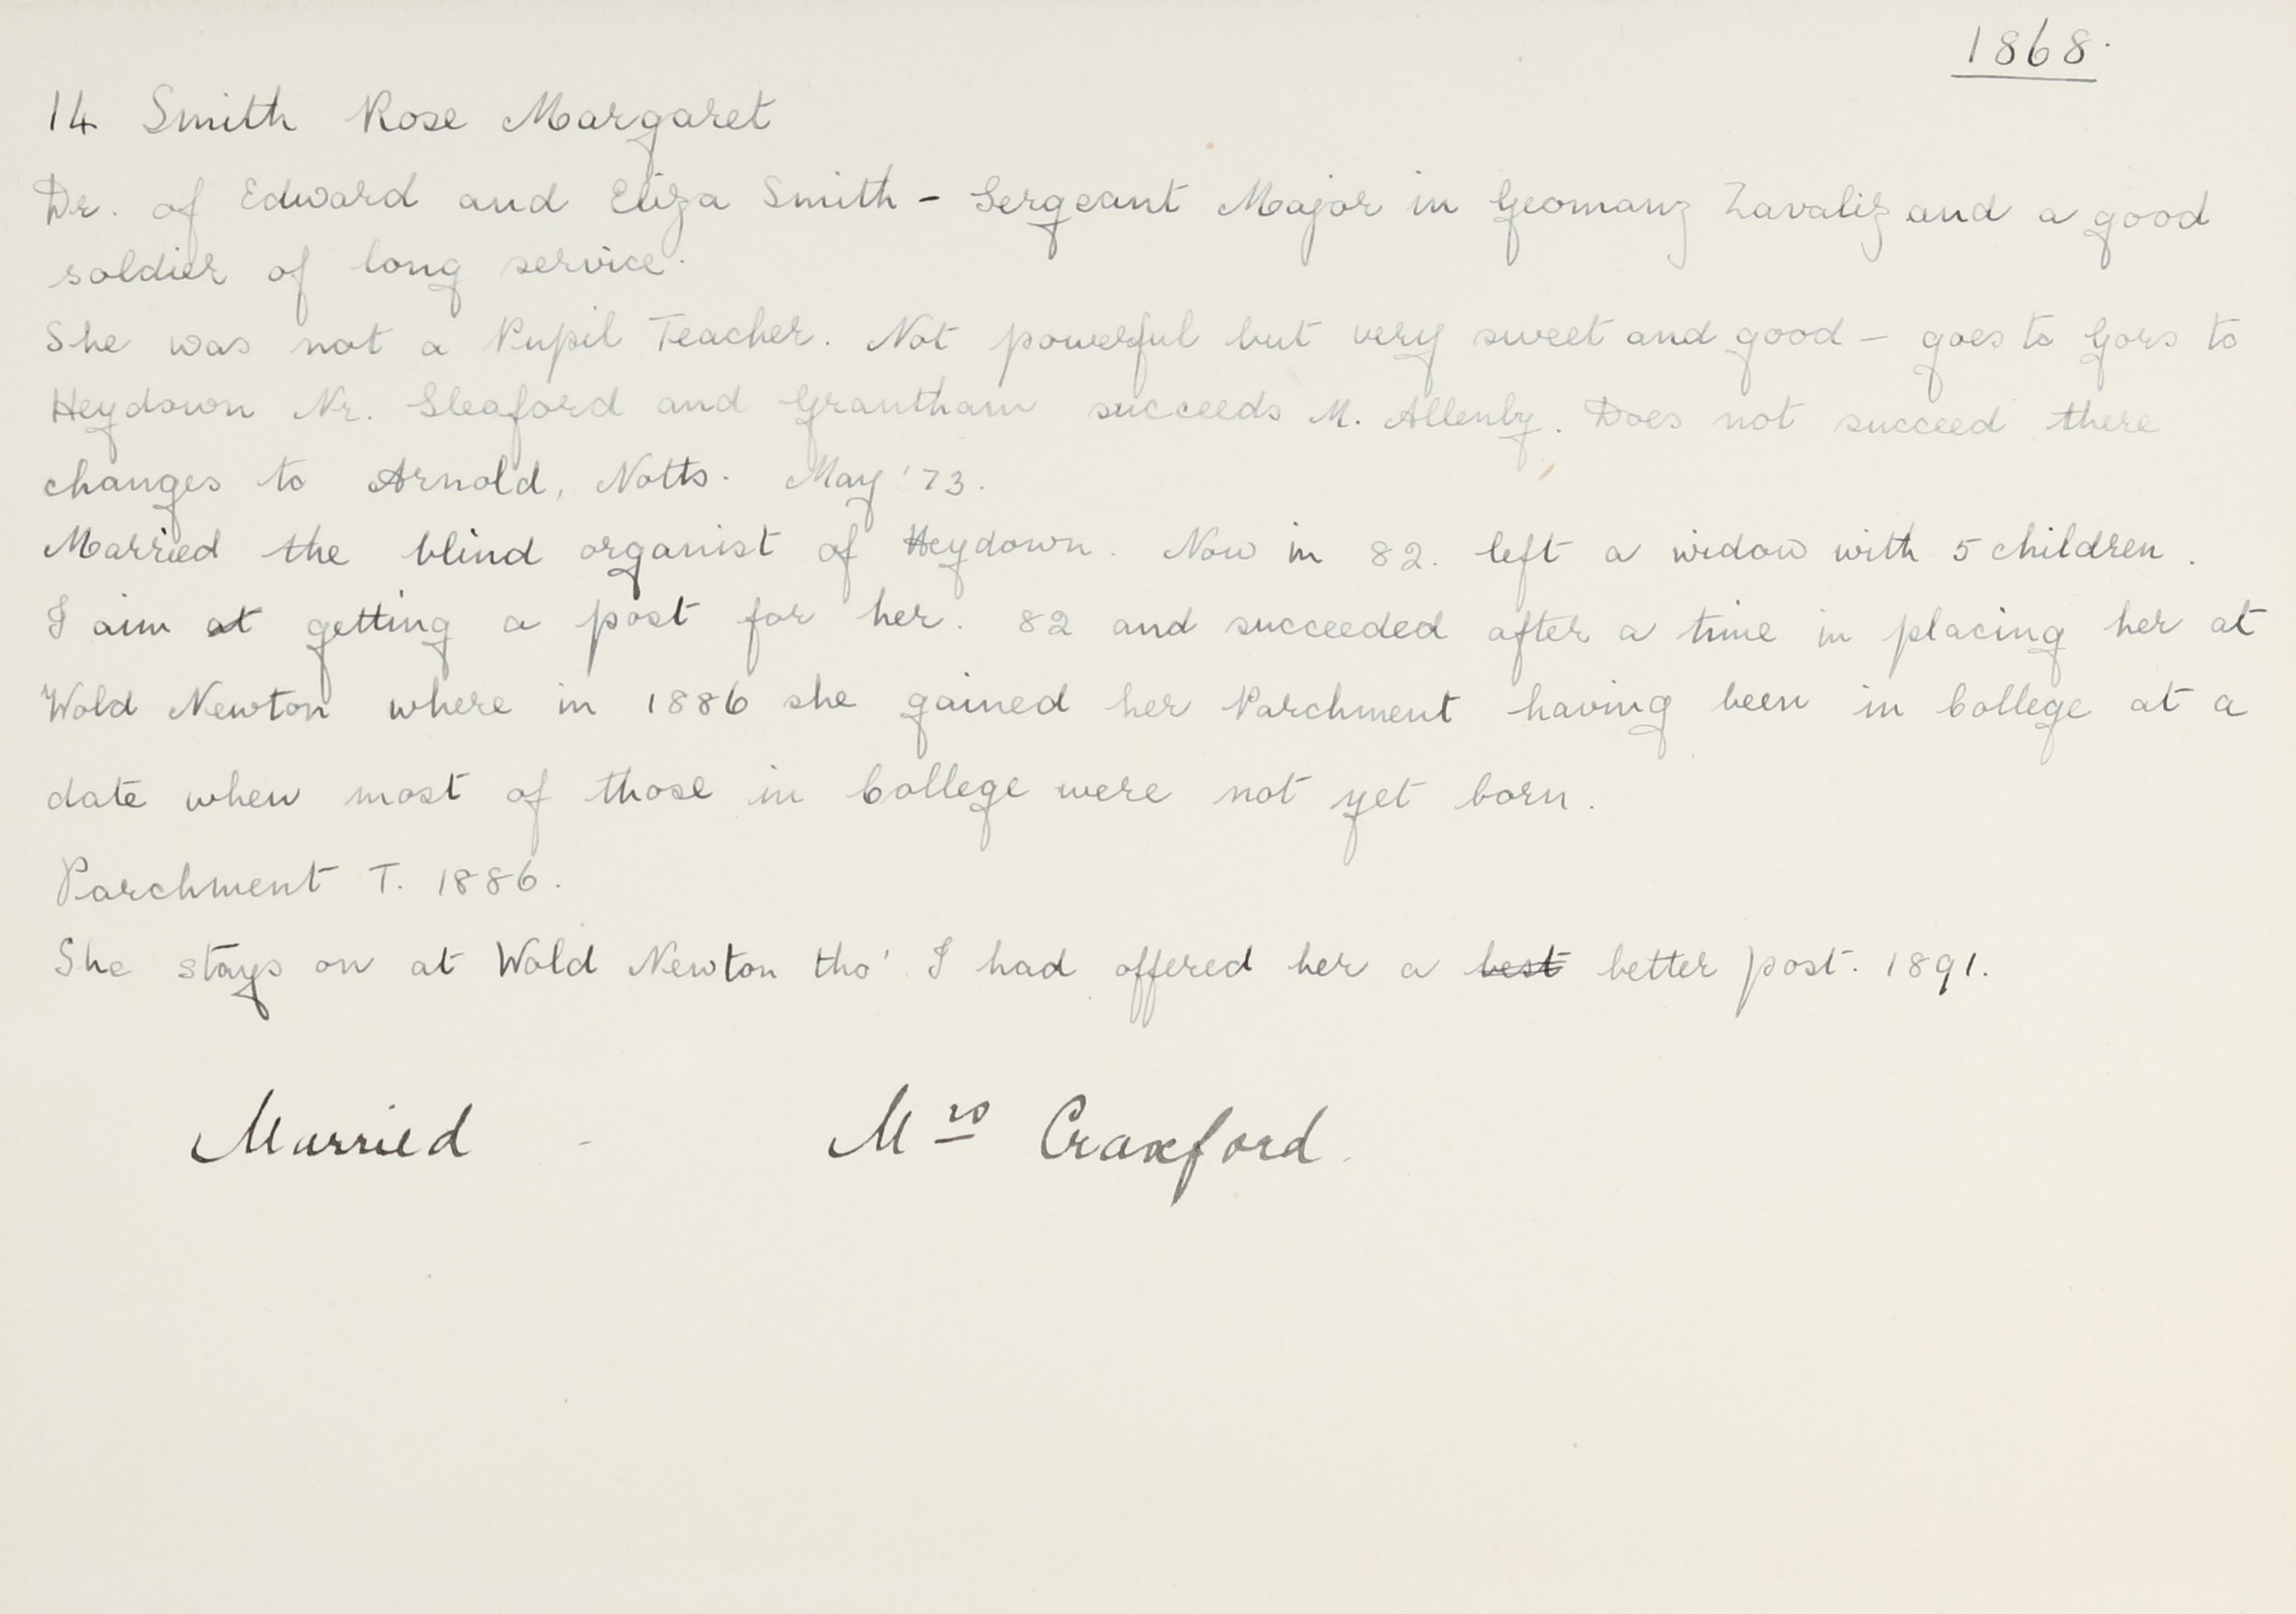 1868.
14 Smith Rose Margaret
Dr. of Edward and Eliza Smith - Sergeant Major in Yeomany Zavaliy and a good
soldier of long service.
She was not a Pupil Teacher. Not powerful but very sweet and good - goes to Goes to
Heydown Nr. Sleaford and Grantham succeeds M. Allenby. Does not succeed there
changes to Arnold, Notts. May '73.
Married the blind organist of Heydown. Now in 82. left a widow with 5 children.
I aim at getting a post for her. 82 and succeeded after a time in placing her at
Wold Newton where in 1886 she gained her Parchment having been in College at a
date when most of those in College were not yet born.
Parchment T. 1886.
She stays on at Wold Newton tho' I had offered her a best better post. 1891.
Married - Mrs Craxford.